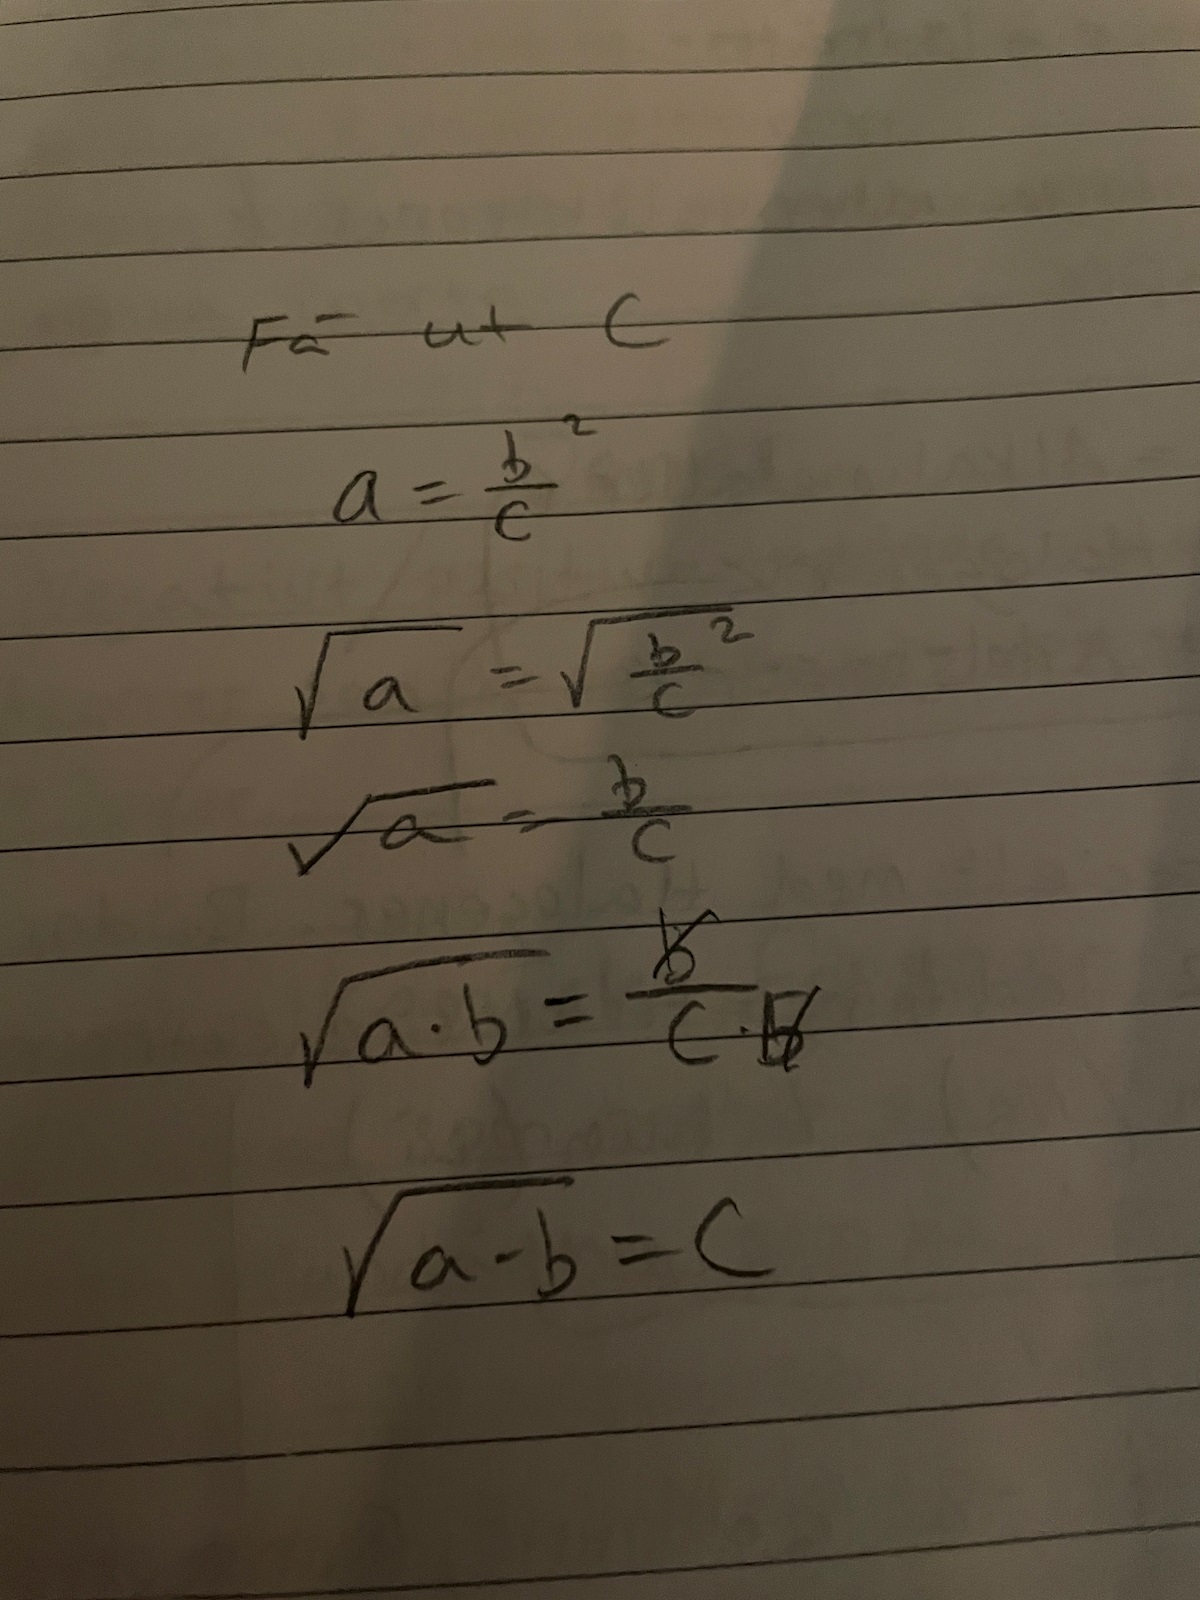 Få ut C
a = b/c ²
√a = √(b/c ²)
√a = b/c
√a·b = b/c·b
√a-b = C